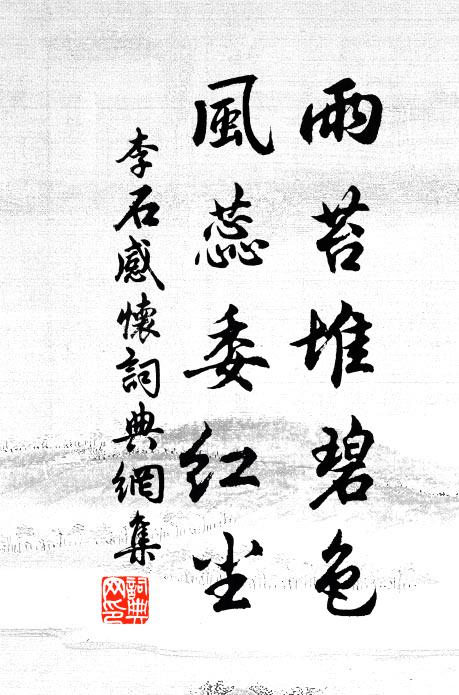 雨苔堆碧色
風蕊委红尘
李石感懷詞典網集
詞典网印